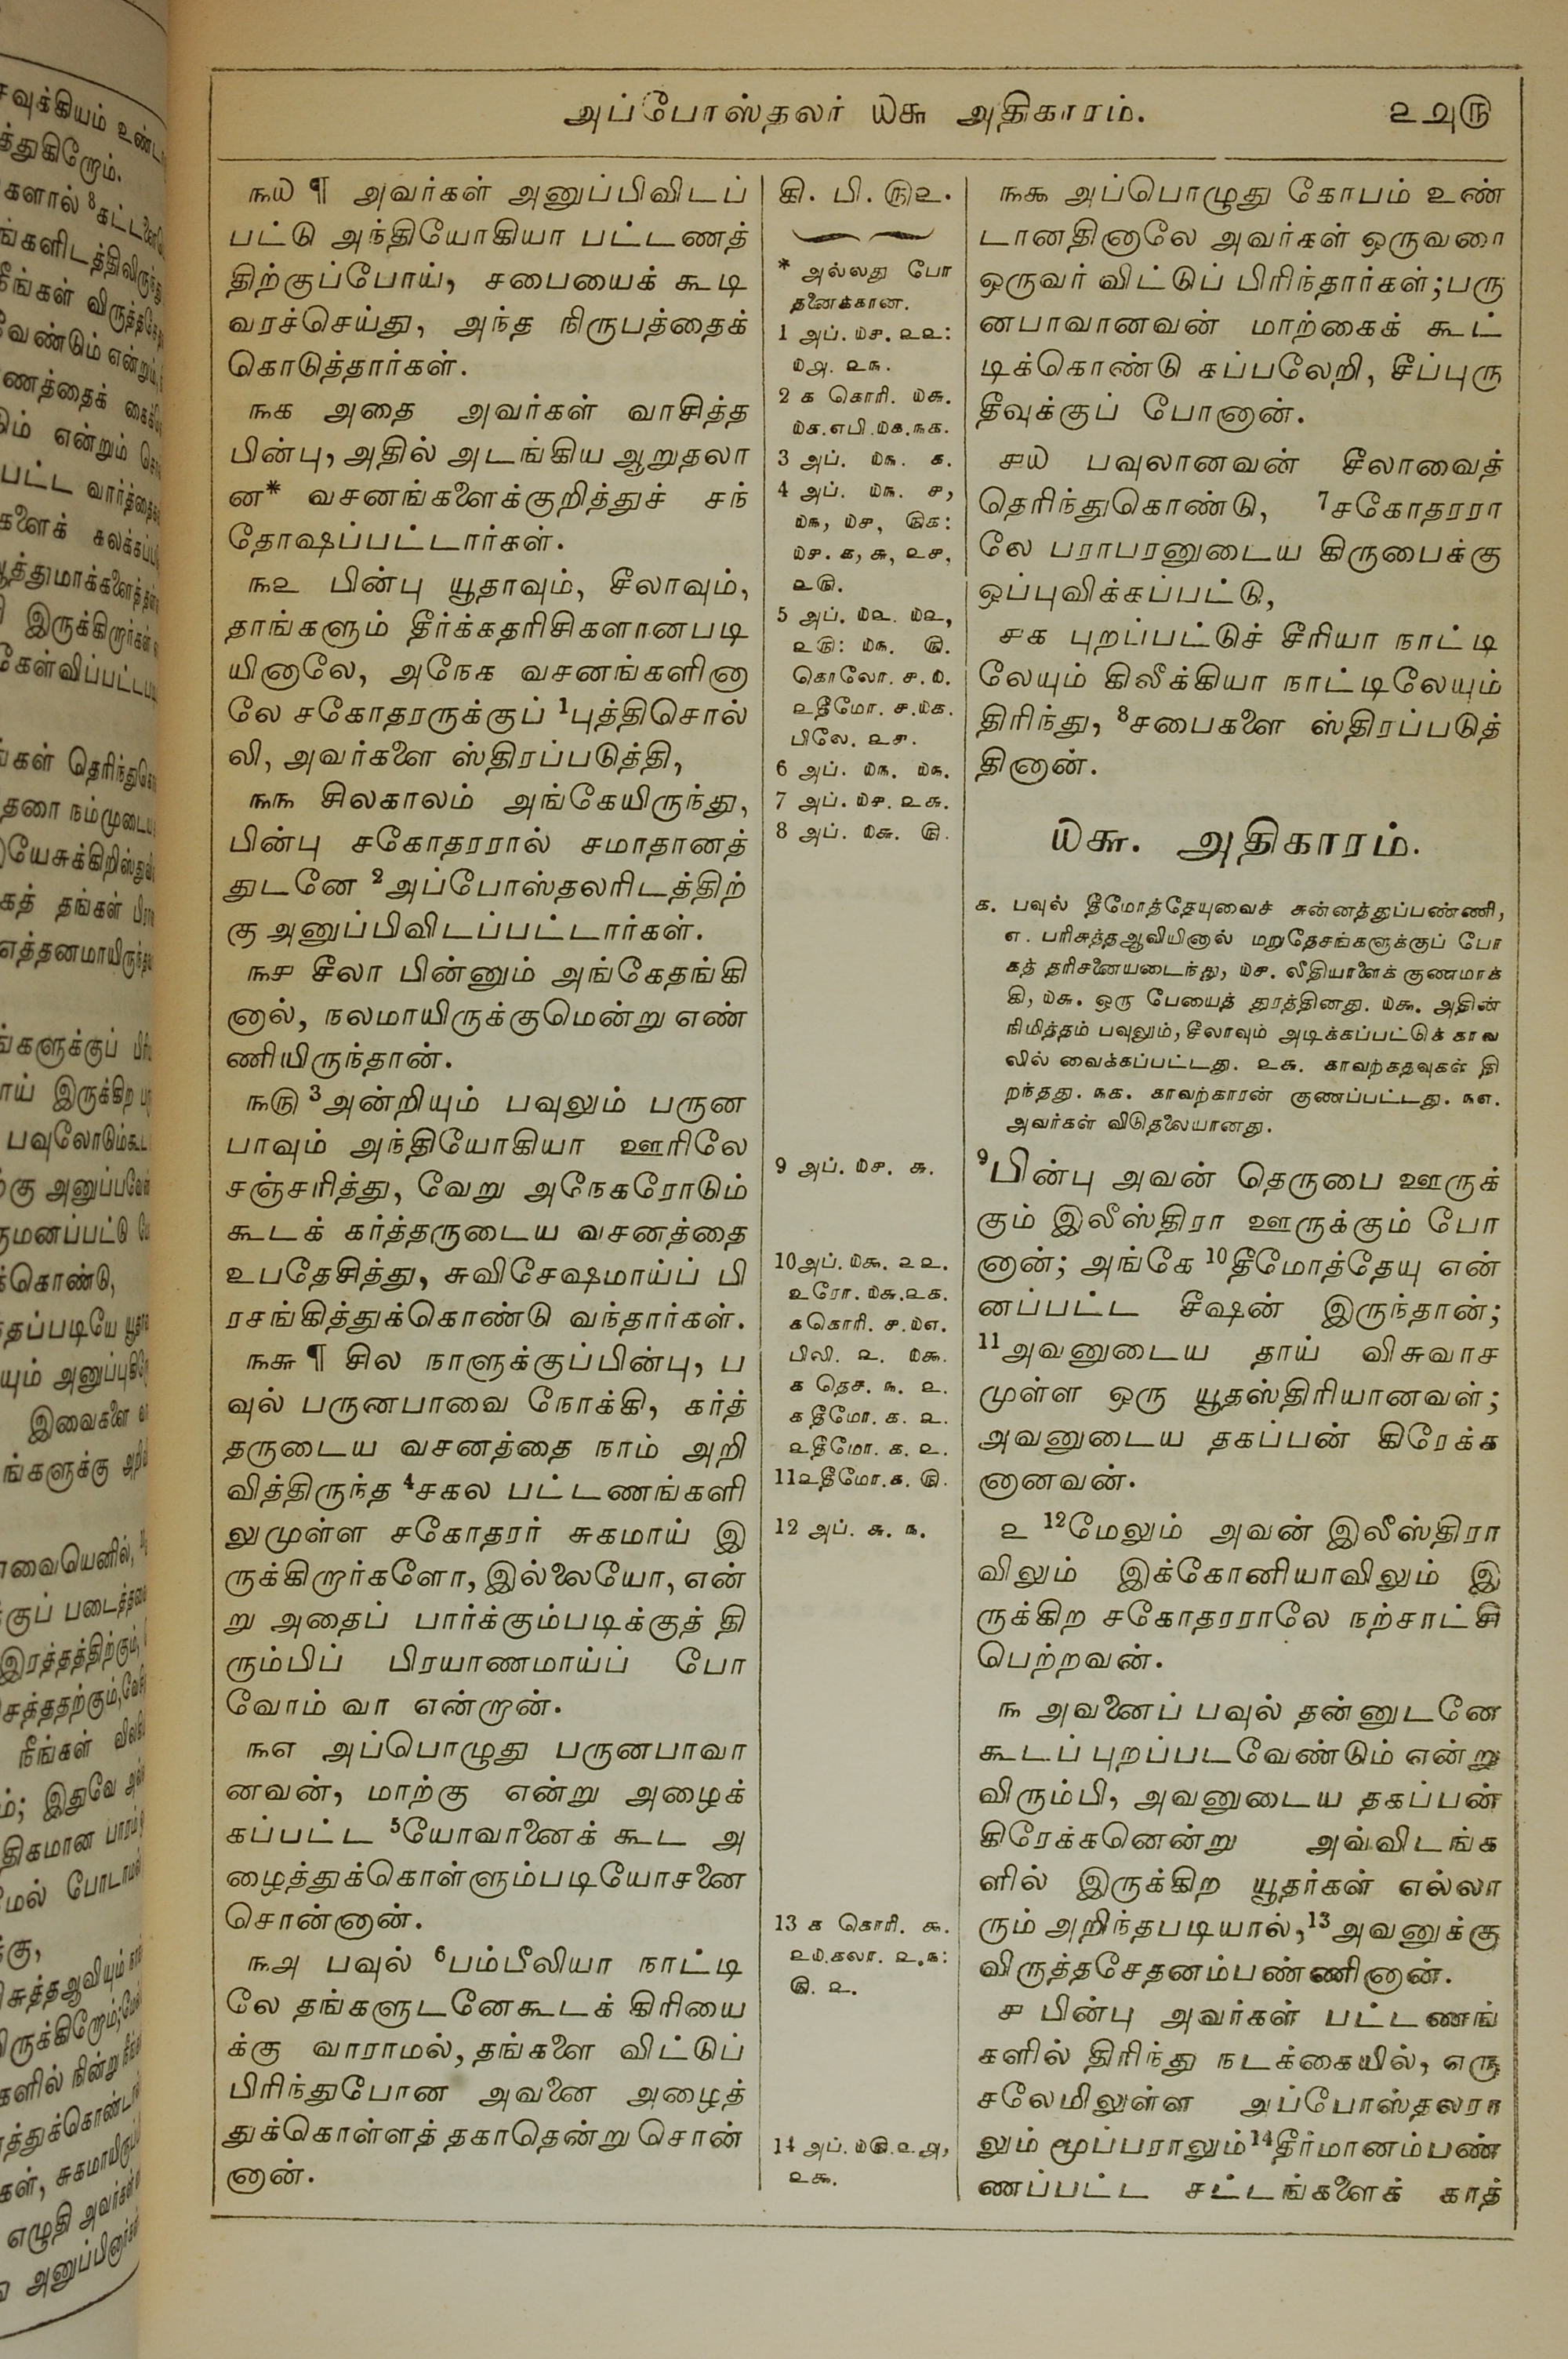 அப்போஸ்தலர் ௰௬ அதிகாரம்.
௨௮௫
௩௰ ¶ அவர்கள் அனுப்பிவிடப்
பட்டு அந்தியோகியா பட்டணத்
திற்குப்போய், சபையைக் கூடி
வரச்செய்து, அந்த நிருபத்தைக்
கொடுத்தார்கள்.
௩௧ அதை அவர்கள் வாசித்த
பின்பு, அதில் அடங்கிய ஆறுதலா
ன* வசனங்களைக்குறித்துச் சந்
தோஷப்பட்டார்கள்.
௩௨ பின்பு யூதாவும், சீலாவும்,
தாங்களும் தீர்க்கதரிசிகளானபடி
யினாலே, அநேக வசனங்களினா
லே சகோதரருக்குப் 1புத்திசொல்
லி, அவர்களை ஸ்திரப்படுத்தி,
௩௩ சிலகாலம் அங்கேயிருந்து,
பின்பு சகோதரரால் சமாதானத்
துடனே 2அப்போஸ்தலரிடத்திற்
கு அனுப்பிவிடப்பட்டார்கள்.
௩௪ சீலா பின்னும் அங்கேதங்கி
னால், நலமாயிருக்குமென்று எண்
ணியிருந்தான்.
௩௫ 3அன்றியும் பவுலும் பருன
பாவும் அந்தியோகியா ஊரிலே
சஞ்சரித்து, வேறு அநேகரோடும்
கூடக் கர்த்தருடைய வசனத்தை
உபதேசித்து, சுவிசேஷமாய்ப் பி
ரசங்கித்துக்கொண்டு வந்தார்கள்.
௩௬ ¶ சில நாளுக்குப்பின்பு, ப
வுல் பருனபாவை நோக்கி, கர்த்
தருடைய வசனத்தை நாம் அறி
வித்திருந்த 4சகல பட்டணங்களி
லுமுள்ள சகோதரர் சுகமாய் இ
ருக்கிறார்களோ, இல்லையோ, என்
று அதைப் பார்க்கும்படிக்குத் தி
ரும்பிப் பிரயாணமாய்ப் போ
வோம் வா என்றான்.
௩௭ அப்பொழுது பருனபாவா
னவன், மாற்கு என்று அழைக்
கப்பட்ட 5யோவானைக் கூட அ
ழைத்துக்கொள்ளும்படியோசனை
சொன்னான்.
௩௮ பவுல் 6பம்பீலியா நாட்டி
லே தங்களுடனேகூடக் கிரியை
க்கு வாராமல், தங்களை விட்டுப்
பிரிந்துபோன அவனை அழைத்
துக்கொள்ளத் தகாதென்று சொன்
னான்.
கி. பி. ௫௨.
* அல்லது போ
தனைக்கான.
1 அப். ௰௪. ௨௨:
௰௮. ௨௩.
2 ௧ கொரி. ௰௬.
௰௧.எபி.௰௧.௩௧.
3 அப். ௰௩. ௧.
4 அப். ௰௩. ௪,
௰௩, ௰௪, ௫௧:
௰௪. ௧, ௬, ௨௪,
௨௫.
5 அப். ௰௨. ௰௨,
௨௫: ௰௩. ௫.
கொலோ. ௪.௰.
௨தீமோ. ௪.௰௧.
பிலே. ௨௪.
6 அப். ௰௩. ௰௩.
7 அப். ௰௪. ௨௬.
8 அப். ௰௬. ௫.
9 அப். ௰௪. ௬.
10அப். ௰௯. ௨௨.
உரோ. ௰௬.௨௧.
௧கொரி. ௪.௰௭.
பிலி. ௨. ௰௯.
௧ தெச. ௩. ௨.
௧தீமோ. ௧. ௨.
௨தீமோ. ௧. ௨.
11௨தீமோ.௧. ௫.
12 அப். ௬. ௩.
13 ௧ கொரி. ௯.
௨௰.கலா. ௨.௩:
௫. ௨.
14 அப். ௰௫.௨௮,
௨௯.
௩௯ அப்பொழுது கோபம் உண்
டானதினாலே அவர்கள் ஒருவரை
ஒருவர் விட்டுப் பிரிந்தார்கள்; பரு
னபாவானவன் மாற்கைக் கூட்
டிக்கொண்டு கப்பலேறி, சீப்புரு
தீவுக்குப் போனான்.
௪௰ பவுலானவன் சீலாவைத்
தெரிந்துகொண்டு, 7சகோதரரா
லே பராபரனுடைய கிருபைக்கு
ஒப்புவிக்கப்பட்டு,
௪௧ புறப்பட்டுச் சீரியா நாட்டி
லேயும் கிலீக்கியா நாட்டிலேயும்
திரிந்து, 8சபைகளை ஸ்திரப்படுத்
தினான்.
௰௬. அதிகாரம்.
௧. பவுல் தீமோத்தேயுவைச் சுன்னத்துப்பண்ணி,
௭. பரிசுத்தஆவியினால் மறுதேசங்களுக்குப் போ
கத் தரிசனையடைந்து, ௰௪. லீதியாளைக் குணமாக்
கி, ௰௬. ஒரு பேயைத் துரத்தினது. ௰௯. அதின்
நிமித்தம் பவுலும், சீலாவும் அடிக்கப்பட்டுக் காவ
லில் வைக்கப்பட்டது. ௨௬. காவற்கதவுகள் தி
றந்தது. ௩௧. காவற்காரன் குணப்பட்டது. ௩௭.
அவர்கள் விடுதலையானது.
9பின்பு அவன் தெருபை ஊருக்
கும் இலீஸ்திரா ஊருக்கும் போ
னான்; அங்கே 10தீமோத்தேயு என்
னப்பட்ட சீஷன் இருந்தான்;
11அவனுடைய தாய் விசுவாச
முள்ள ஒரு யூதஸ்திரியானவள்;
அவனுடைய தகப்பன் கிரேக்க
னானவன்.
௨ 12மேலும் அவன் இலீஸ்திரா
விலும் இக்கோனியாவிலும் இ
ருக்கிற சகோதரராலே நற்சாட்சி
பெற்றவன்.
௩ அவனைப் பவுல் தன்னுடனே
கூடப் புறப்படவேண்டும் என்று
விரும்பி, அவனுடைய தகப்பன்
கிரேக்கனென்று அவ்விடங்க
ளில் இருக்கிற யூதர்கள் எல்லா
ரும் அறிந்தபடியால், 13அவனுக்கு
விருத்தசேதனம்பண்ணினான்.
௪ பின்பு அவர்கள் பட்டணங்
களில் திரிந்து நடக்கையில், எரு
சலேமிலுள்ள அப்போஸ்தலரா
லும் மூப்பராலும் 14தீர்மானம்பண்
ணப்பட்ட சட்டங்களைக் காத்